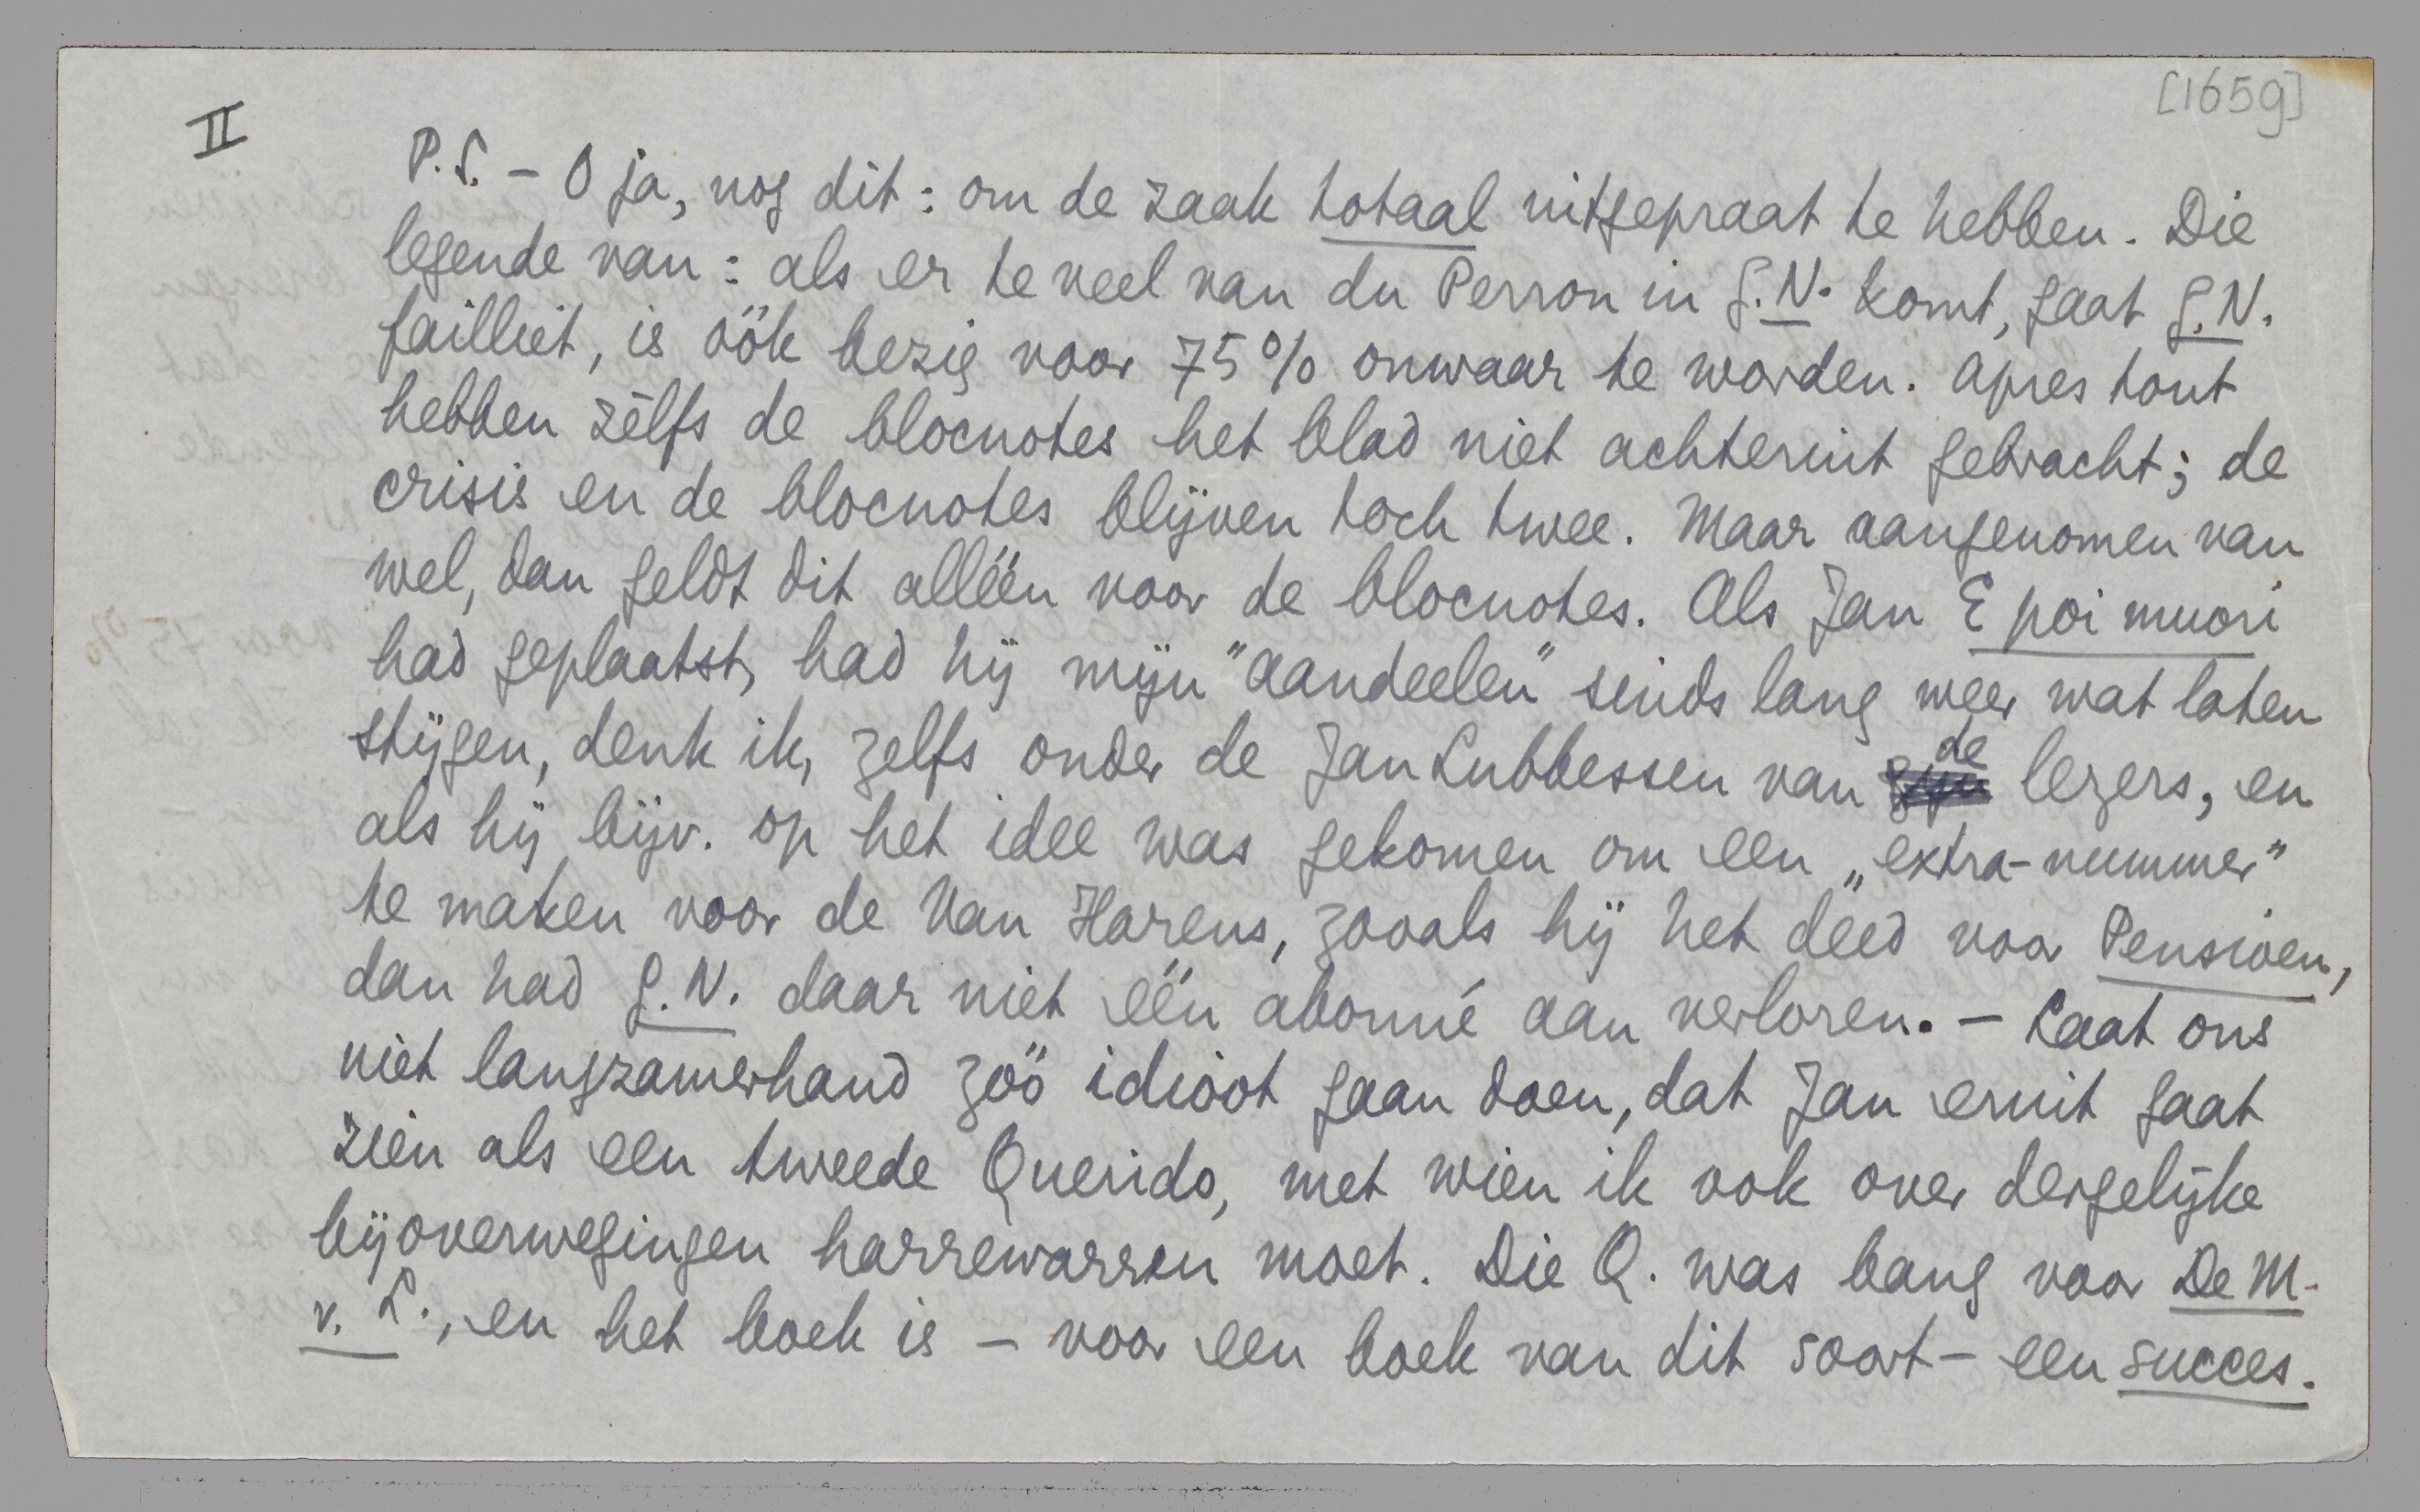 [1659]
II
P.S. – O ja, nog dit: om de zaak totaal uitgepraat te hebben. Die
legende van: als er te veel van du Perron in G.N. komt, gaat G.N.
failliet, is óók bezig voor 75% onwaar te worden. Apres tout
hebben zèlfs de blocnotes het blad niet achteruit gebracht; de
crisis en de blocnotes blijven toch twee. Maar aangenomen van
wel, dan geldt dit alléén voor de blocnotes. Als Jan E poi muori
had geplaatst, had hij mijn "aandeelen" sinds lang weer wat laten
stijgen, denk ik, zelfs onder de Jan Lubbessen van de lezers, en
als hij bijv. op het idee was gekomen om een „extra-nummer"
te maken voor de Van Harens, zooals hij het deed voor Pensioen,
dan had G.N. daar niet één abonné aan verloren. – Laat ons
niet langzamerhand zóó idioot gaan doen, dat Jan eruit gaat
zien als een tweede Querido, met wien ik ook over dergelijke
bijoverwegingen harrewarren moet. Die Q. was bang voor De M.
v. L., en het boek is – voor een boek van dit soort – een succes.